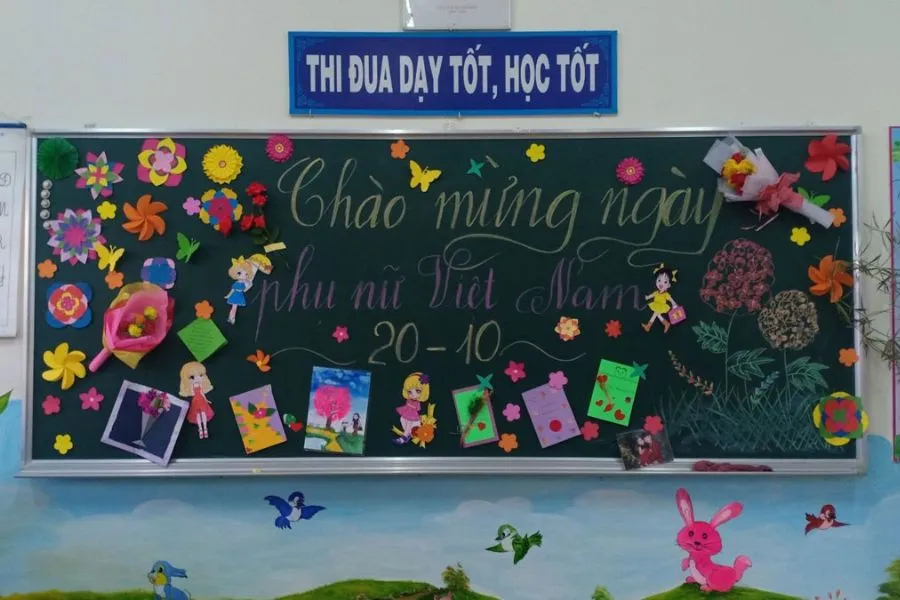 THI ĐUA DẠY TỐT, HỌC TỐT
Chào mừng ngày
phụ nữ Việt Nam
20 - 10